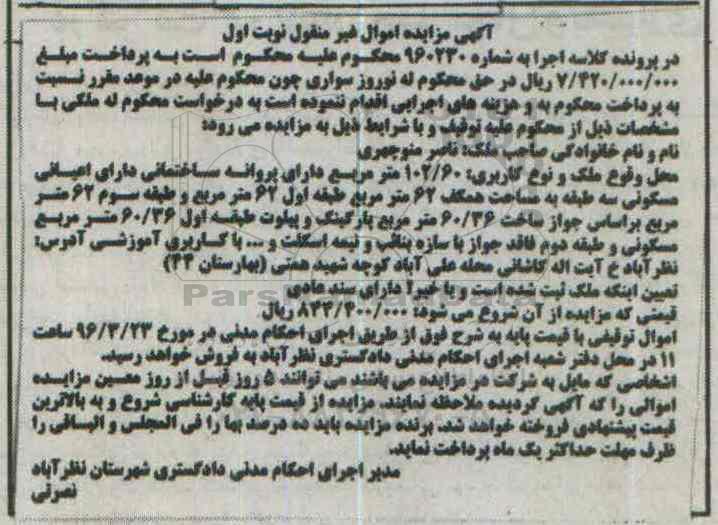 آگهی مزایده اموال غیر منقول نوبت اول
در پرونده کلاسه اجرا به شماره ۹۶۰۲۳۰ محکوم علیه محکوم است به پرداخت مبلغ
۷/۴۲۰/۰۰۰/۰۰۰ ریال در حق محکوم له نوروز سواری چون محکوم علیه در موعد مقرر نسبت
به پرداخت محکوم به و هزینه های اجرایی اقدام ننموده است به درخواست محکوم له ملکی با
مشخصات ذیل از محکوم علیه توقیف و با شرایط ذیل به مزایده می رود:
نام و نام خانوادگی صاحب ملک: ناصر منوچهری
محل وقوع ملک و نوع کاربری: ۱۰۲/۶۰ متر مربع دارای پروانه ساختمانی دارای اعیانی
مسکونی سه طبقه به مساحت همکف ۶۲ متر مربع طبقه اول ۶۲ متر مربع و طبقه سوم ۶۲ متر
مربع براساس جواز ساخت ۶۰/۳۶ متر مربع پارکینگ و پیلوت طبقه اول ۶۰/۳۶ متر مربع
مسکونی و طبقه دوم فاقد جواز با سازه بناب و نیمه اسکلت و ... با کاربری آموزشی آدرس:
نظرآباد خ آیت اله کاشانی محله علی آباد کوچه شهید همتی (بهارستان ۴۴)
تعیین اینکه ملک ثبت شده است و یا خیرا دارای سند عادی
ParsNamadData
قیمتی که مزایده از آن شروع می شود: ۸۳۳/۴۰۰/۰۰۰ ریال
اموال توقیفی با قیمت پایه به شرح فوق از طریق اجرای احکام مدنی در مورخ ۹۶/۳/۲۳ ساعت
۱۱ در محل دفتر شعبه اجرای احکام مدنی دادگستری نظرآباد به فروش خواهد رسید.
اشخاصی که مایل به شرکت در مزایده می باشند می توانند ۵ روز قبل از روز معین مزایده
اموالی را که آگهی گردیده ملاحظه نمایند. مزایده از قیمت پایه کارشناسی شروع و به بالاترین
قیمت پیشنهادی فروخته خواهد شد. برنده مزایده باید ده درصد بها را فی المجلس و الباقی را
ظرف مهلت حداکثر یک ماه پرداخت نماید.
مدیر اجرای احکام مدنی دادگستری شهرستان نظرآباد
نصرتی